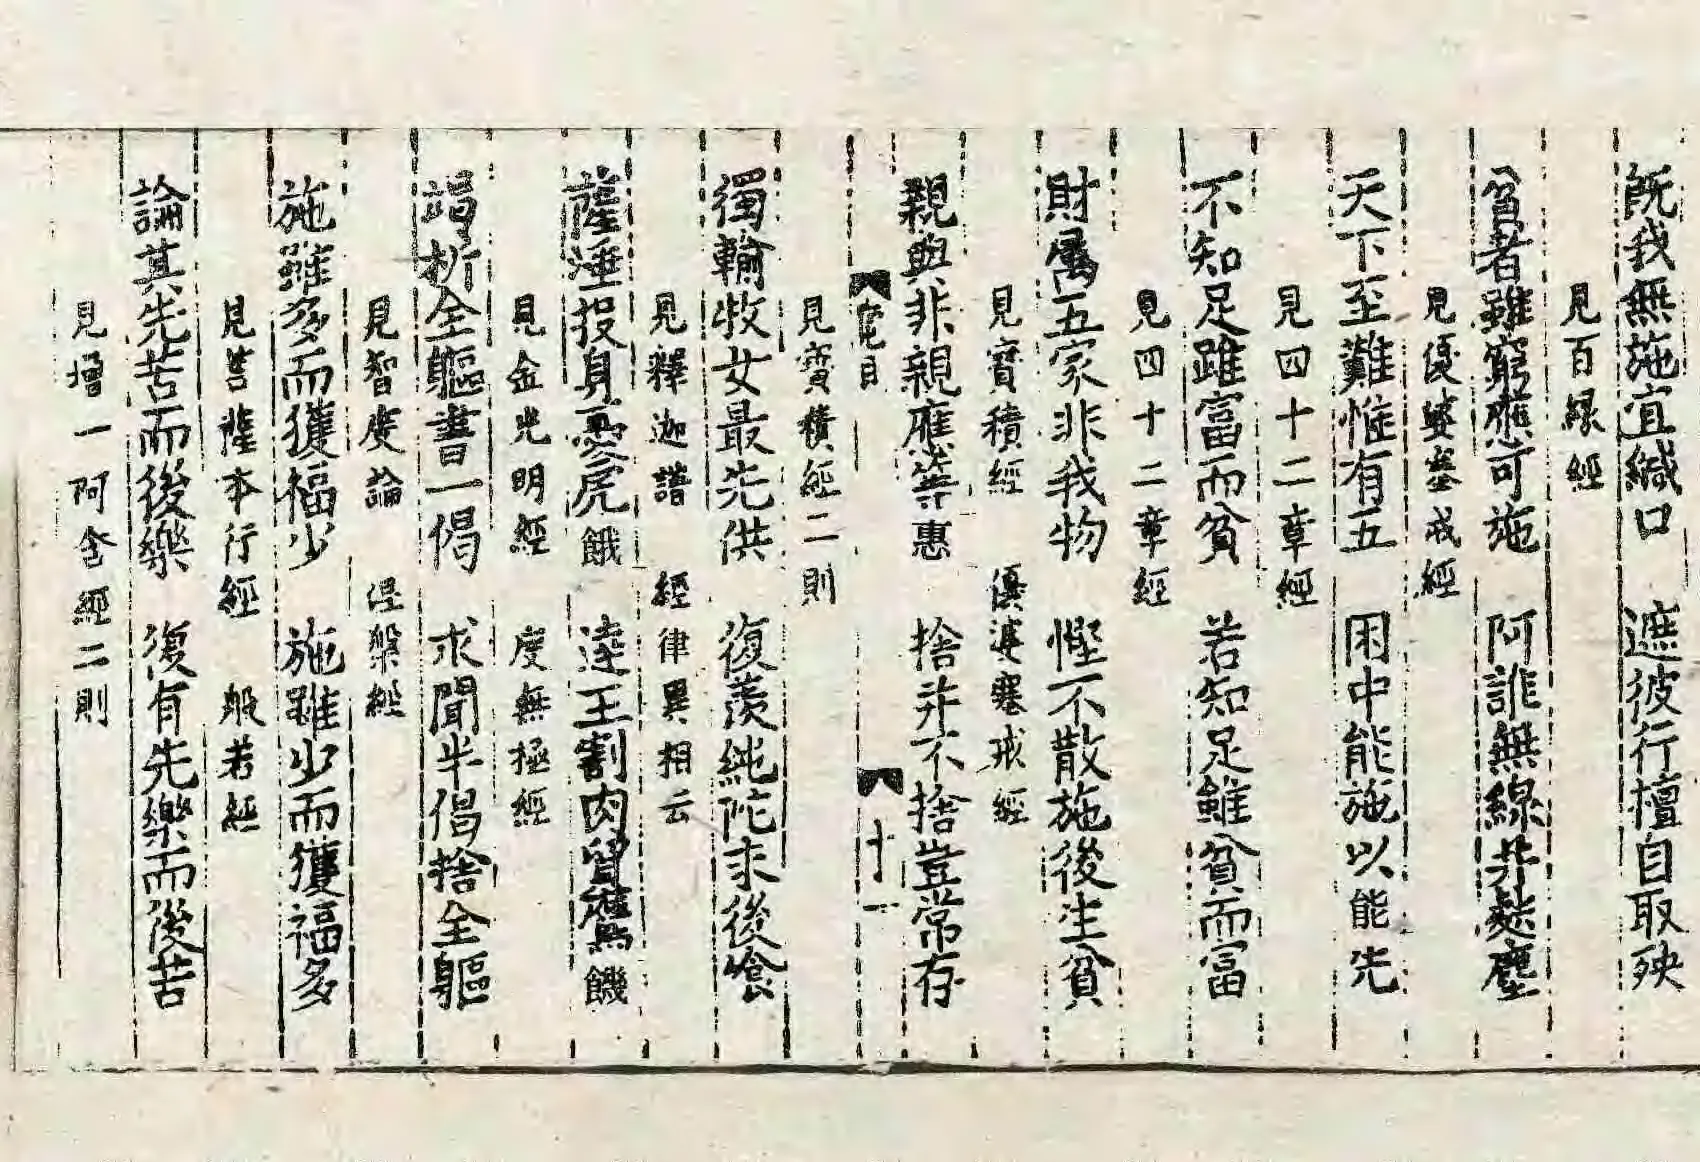 既我無施宜緘口　遮彼行檀自取殃
見百緣經
貧者雖窮應可施　阿誰無線并麨塵
見優婆塞戒經
天下至難惟有五　困中能施以能先
見四十二章經
不知足雖富而貧　若知足雖貧而富
見四十二章經
財屬五家非我物　慳不散施後生貧
見寶積經　優婆塞戒經
親與非親應等惠　捨并不捨豈常存
見寶積經二則
十一
獨輸牧女最先供　復羨純陀末後飡
見釋迦譜　經律異相云
薩埵投身憂虎餓　達王割肉貿鷹饑
見金光明經　度無極經
竭析全軀書一偈　求聞半偈捨全軀
見智度論　涅槃經
施雖多而獲福少　施雖少而獲福多
見菩薩本行經　般若經
論其先苦而後樂　復有先樂而後苦
見增一阿含經二則